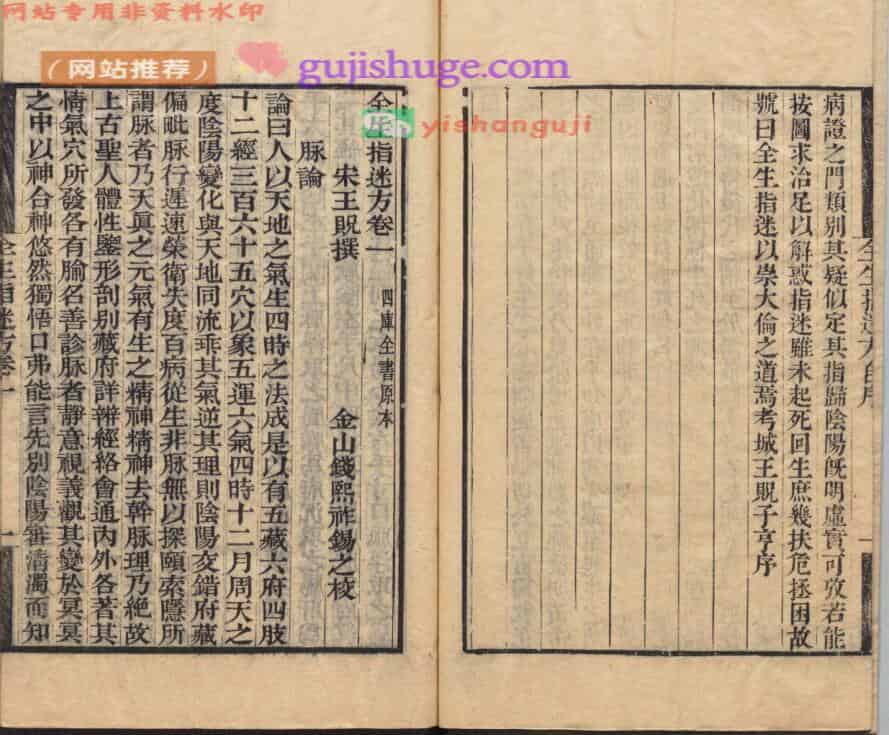 网站专用非资料水印
（网站推荐）
gujishuge.com
yishanguji
病證之門類別其疑似定其指歸陰陽旣明虛實可攷若能
按圖求治足以解惑指迷雖未起死回生庶幾扶危拯困故
號曰全生指迷以崇大倫之道焉考城王貺子亨序
全生指迷方卷一
四庫全書原本
宋王貺撰
金山錢熙祚錫之校
脉論
論曰人以天地之氣生四時之法成是以有五藏六府四肢
十二經三百六十五穴以象五運六氣四時十二月周天之
度陰陽變化與天地同流乖其氣逆其理則陰陽交錯府藏
偏毗脉行遲速榮衛失度百病從生非脉無以探頤索隱所
謂脉者乃天眞之元氣有生之精神精神去幹脉理乃絶故
上古聖人體性鑒形剖別藏府詳辨經絡會通內外各著其
情氣穴所發各有腧名善診脉者靜意視義觀其變於冥冥
之中以神合神悠然獨悟口弗能言先別陰陽審淸濁而知
全生指迷方卷一
一